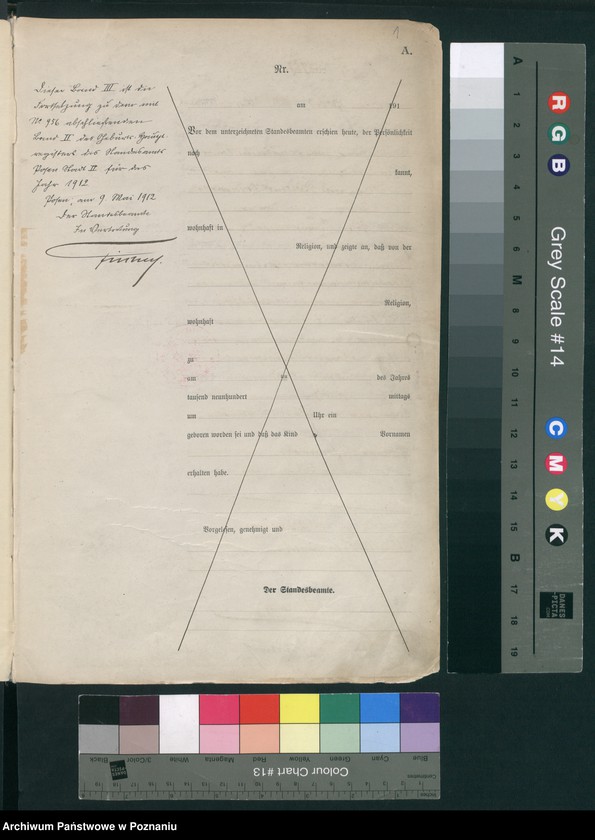 1
A.
Nr.
Dieser Band III ist die
Fortsetzung zu dem mit
No 956 abschließenden
Band II des Geburts-Haupt-
registers des Standesamts
Posen Nord II für das
Jahr 1912
Posen, am 9 Mai 1912
Der Standesbeamte
In Vertretung
am 191
Vor dem unterzeichneten Standesbeamten erschien heute, der Persönlichkeit
nach
kannt,
wohnhaft in
Religion, und zeigte an, daß von der
Religion,
wohnhaft
zu
am des Jahres
tausend neunhundert mittags
um Uhr ein
geboren worden sei und daß das Kind Vornamen
erhalten habe.
Vorgelesen, genehmigt und
Der Standesbeamte.
A 1 2 3 4 5 6 M 8 9 10 11 12 13 14 15 B 17 18 19
R
G
B
Grey Scale #14
C
M
Y
K
DANES
-PICTA
Blue Cyan Green Yellow Red Magenta White 3/Color Black
Colour Chart #13
DANES
PICTA
Archiwum Państwowe w Poznaniu